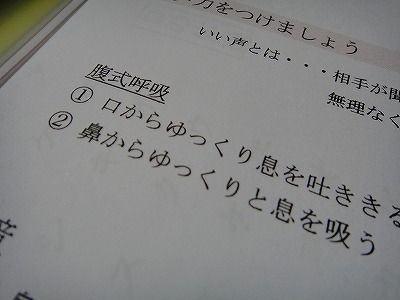 力をつけましょう
いい声とは・・・相手が聞
無理なく
腹式呼吸
① 口からゆっくり息を吐ききる
② 鼻からゆっくりと息を吸う